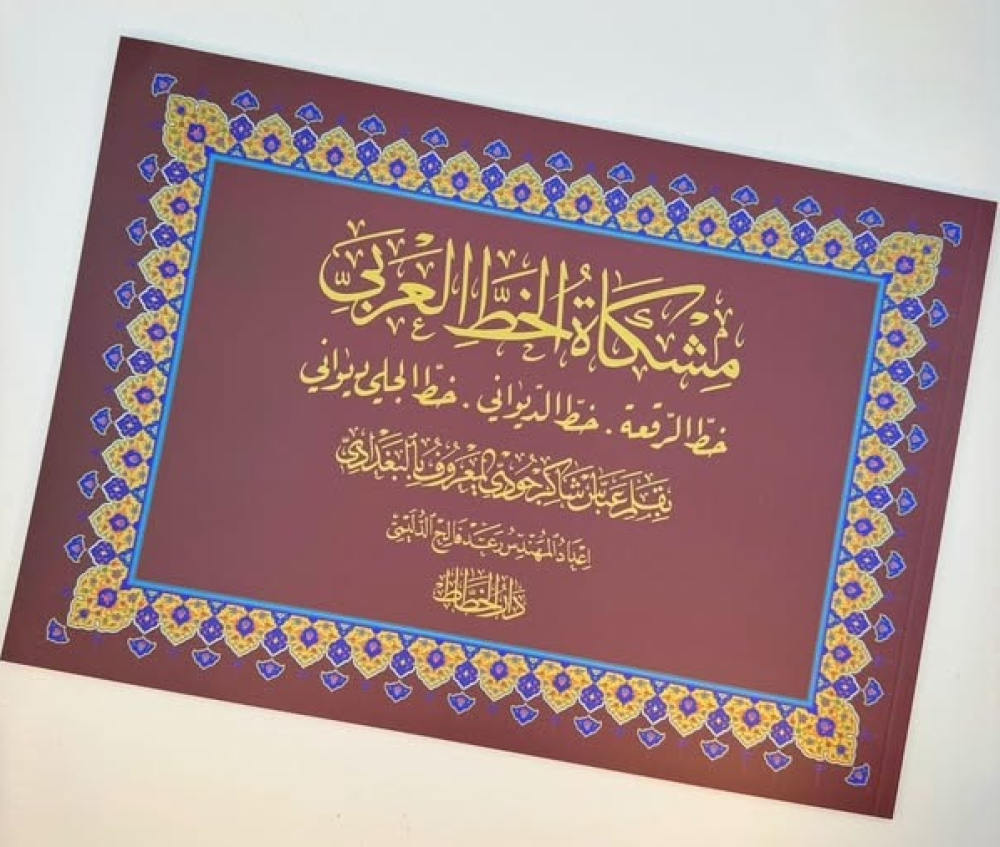 مِشْكَاةُ الخَطِّ العَرَبِيِّ
خطّ الرّقعة . خطّ الدّيواني . خطّ الجلي ديواني
بِقَلَمِ عَبَّاسْ شَاكِرْ جُودِيّ المَعْرُوفُ بِالبَغْدَادِيّ
إعْدَادُ المُهَنْدِسْ رَعَدْ فَالِحْ الدُّلَيْمِيّ
دَارُ الخَطَّاطْ